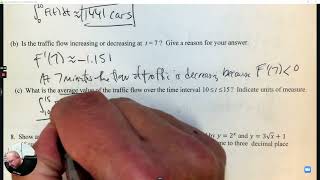 ∫₀¹⁰ F(t) dt ≈ 1441 cars
(b) Is the traffic flow increasing or decreasing at t = 7 ? Give a reason for your answer.
F'(7) ≈ -1.151
At 7 minutes the flow of traffic is decreasing because F'(7) < 0
(c) What is the average value of the traffic flow over the time interval 10 ≤ t ≤ 15 ? Indicate units of measure.
∫ 15
10
8. Show
d by y = 2ˣ and y = 3√x + 1
me to three decimal place